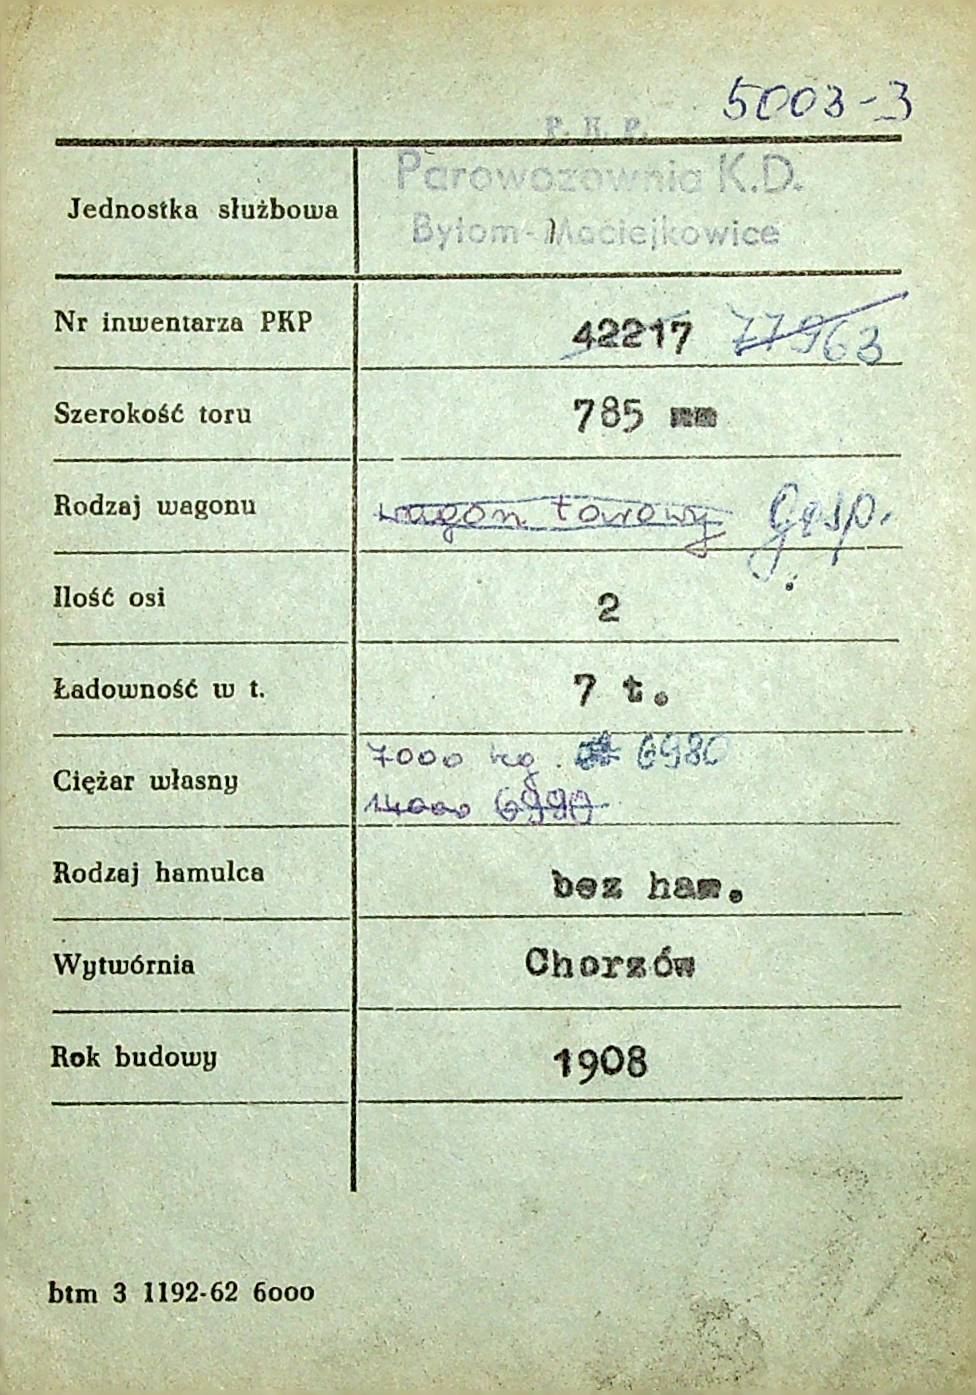 5003-3
P. K. P.
Parowozownia K.D.
Jednostka służbowa
Bytom-Maciejkowice
Nr inwentarza PKP 42217 77963
Szerokość toru 785 mm
Rodzaj wagonu wagon towowy Gosp.
Ilość osi 2
Ładowność w t. 7 t.
7000 kg. 6980
Ciężar własny
14000 6990
Rodzaj hamulca bez ham.
Wytwórnia Chorzów
Rok budowy 1908
btm 3 1192-62 6000